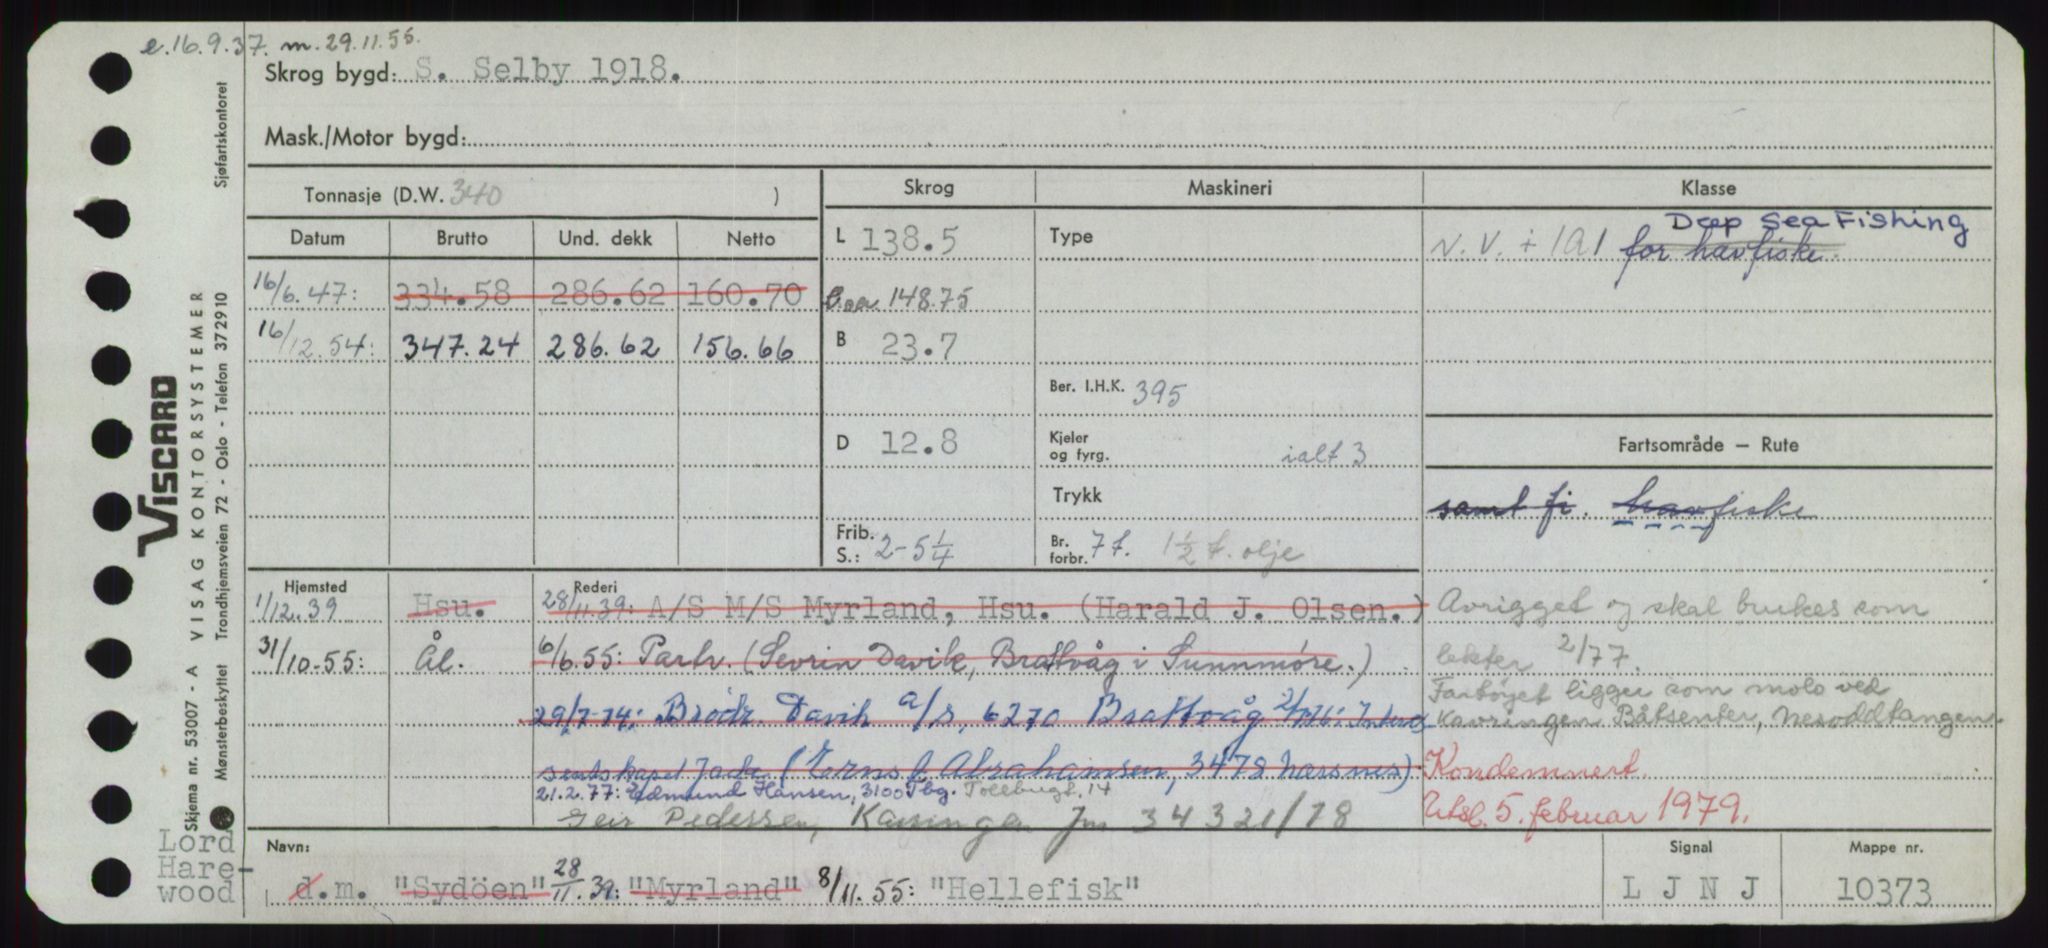 e.16.9.37. m.29.11.55.
Skrog bygd: S. Selby 1918.
Mask./Motor bygd:
Tonnasje (D.W. 340 )
Skrog
Maskineri
Klasse
Datum
Brutto
Und. dekk
Netto
16/6.47:
334.58
286.62
160.70
16/12.54:
347.24
286.62
156.66
L 138.5
148.75
B 23.7
D 12.8
Frib.
S.: 2-5 1/4
Type
Ber. I.H.K. 395
Kjeler
og fyrg.
ialt 3
Trykk
Br.
forbr. 7 t. 1 1/2 t. olje
Deep Sea Fishing
N.V. + 1A1 for havfiske.
Fartsområde – Rute
samt fi. havfiske
Hjemsted
Rederi
1/12.39
Hsu.
28/11.39: A/S M/S Myrland, Hsu. (Harald J. Olsen.)
31/10-55:
Ål.
6/6.55: Partr. (Sevrin Davik, Brattvåg i Sunnmøre.)
29/7-74: Brødr. Davik A/S, 6270 Brattvåg
sentskapet (Abrahamsen, 3478 Nærsnes)
21.2.77: Edmund Hansen, 3100 Tbg. Tollbugt. 14
Geir Pedersen,
Avrigget og skal brukes som
lekter 2/77.
Fartøyet ligger som molo ved
Kavringen Båtsenter, Nesoddtangen.
Kondemnert.
Utsl. 5. februar 1979.
Navn:
d.m. "Sydöen" 28/11.39: "Myrland" 8/11.55: "Hellefisk"
Signal
L J N J
Mappe nr.
10373
Lord
Hare-
wood
Viscard
Skjema nr. 53007 - A VISAG KONTORSYSTEMER
Mønsterbeskyttet Trondhjemsveien 72 - Oslo - Telefon 372910
Sjøfartskontoret